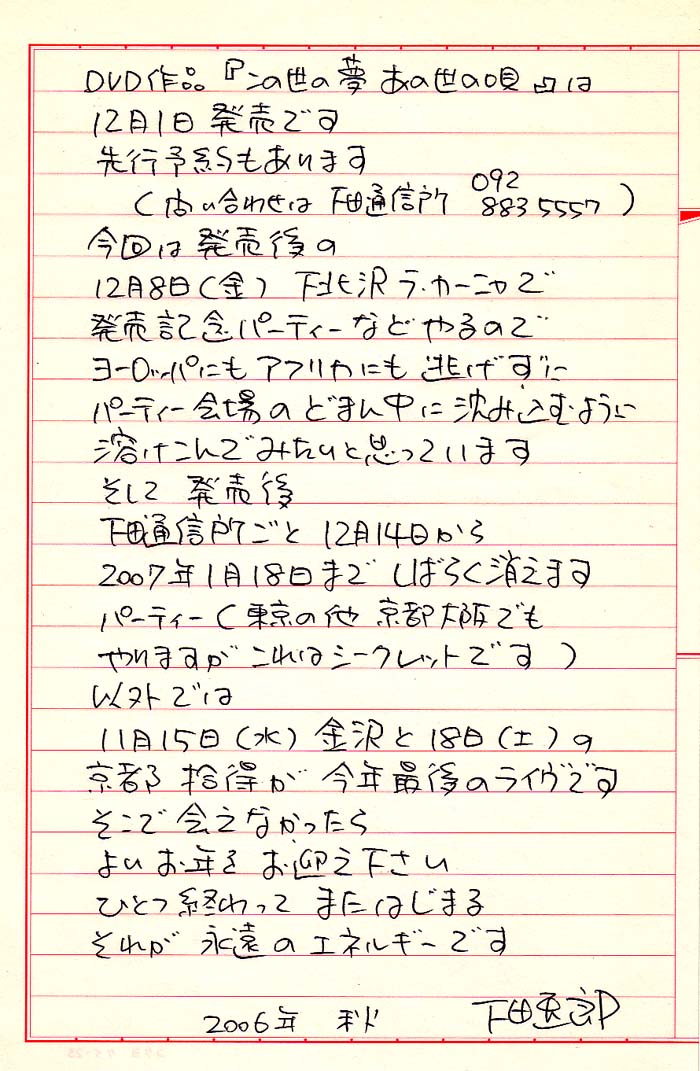 DVD作品『この世の夢 あの世の唄』は
12月1日 発売です
先行予約もあります
(問い合わせは 下田通信所 092 883 5557)
今回は発売後の
12月8日(金) 下北沢 ラ・カーニャで
発売記念パーティーなどやるので
ヨーロッパにも アフリカにも 逃げずに
パーティー会場の どまん中に 沈み込むように
溶けこんでみたいと思っています
そして 発売後
下田通信所ごと 12月14日から
2007年1月18日まで しばらく消えます
パーティー(東京の他 京都 大阪でも
やりますが これはシークレットです)
以外では
11月15日(水) 金沢と 18日(土)の
京都 拾得が 今年最後のライヴです
そこで 会えなかったら
よいお年を お迎え下さい
ひとつ終わって またはじまる
それが 永遠のエネルギーです
2006年 秋 下田逸郎